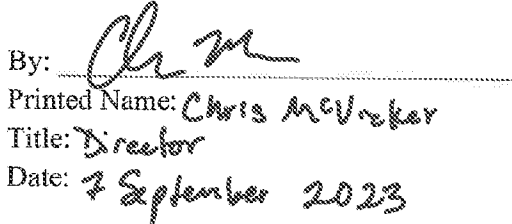 By:
Printed Name: Chris McVicker
Title: Director
Date: 7 September 2023